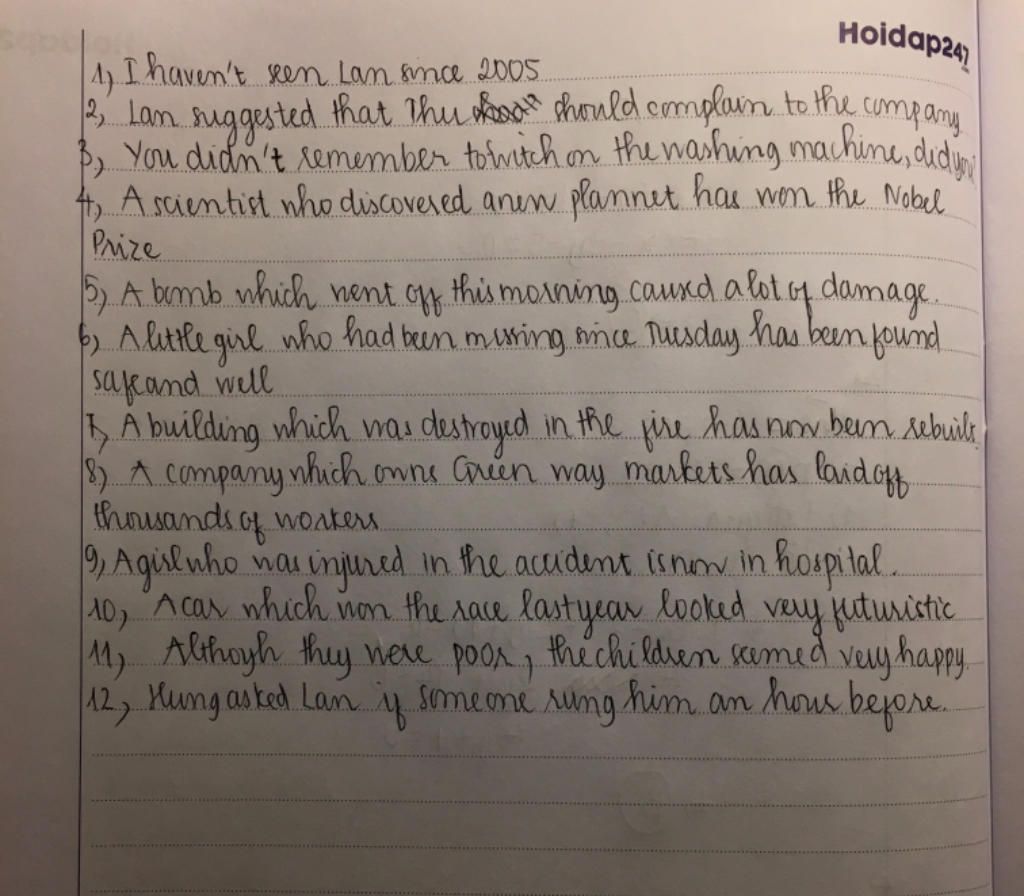 Hoidap247
1, I haven't seen Lan since 2005
2, Lan suggested that Thu should complain to the company
3, You didn't remember to switch on the washing machine, did you?
4, A scientist who discovered a new plannet has won the Nobel
Prize
5, A bomb which went off this morning caused a lot of damage.
6, A little girl who had been missing since Tuesday has been found
safe and well
7, A building which was destroyed in the fire has now been rebuilt.
8, A company which owns Green way markets has laid off
thousands of workers
9, A girl who was injured in the accident is now in hospital.
10, A car which won the race last year looked very futuristic
11, Althoygh they were poor, the children seemed very happy.
12, Hung asked Lan if someone rung him an hour before.